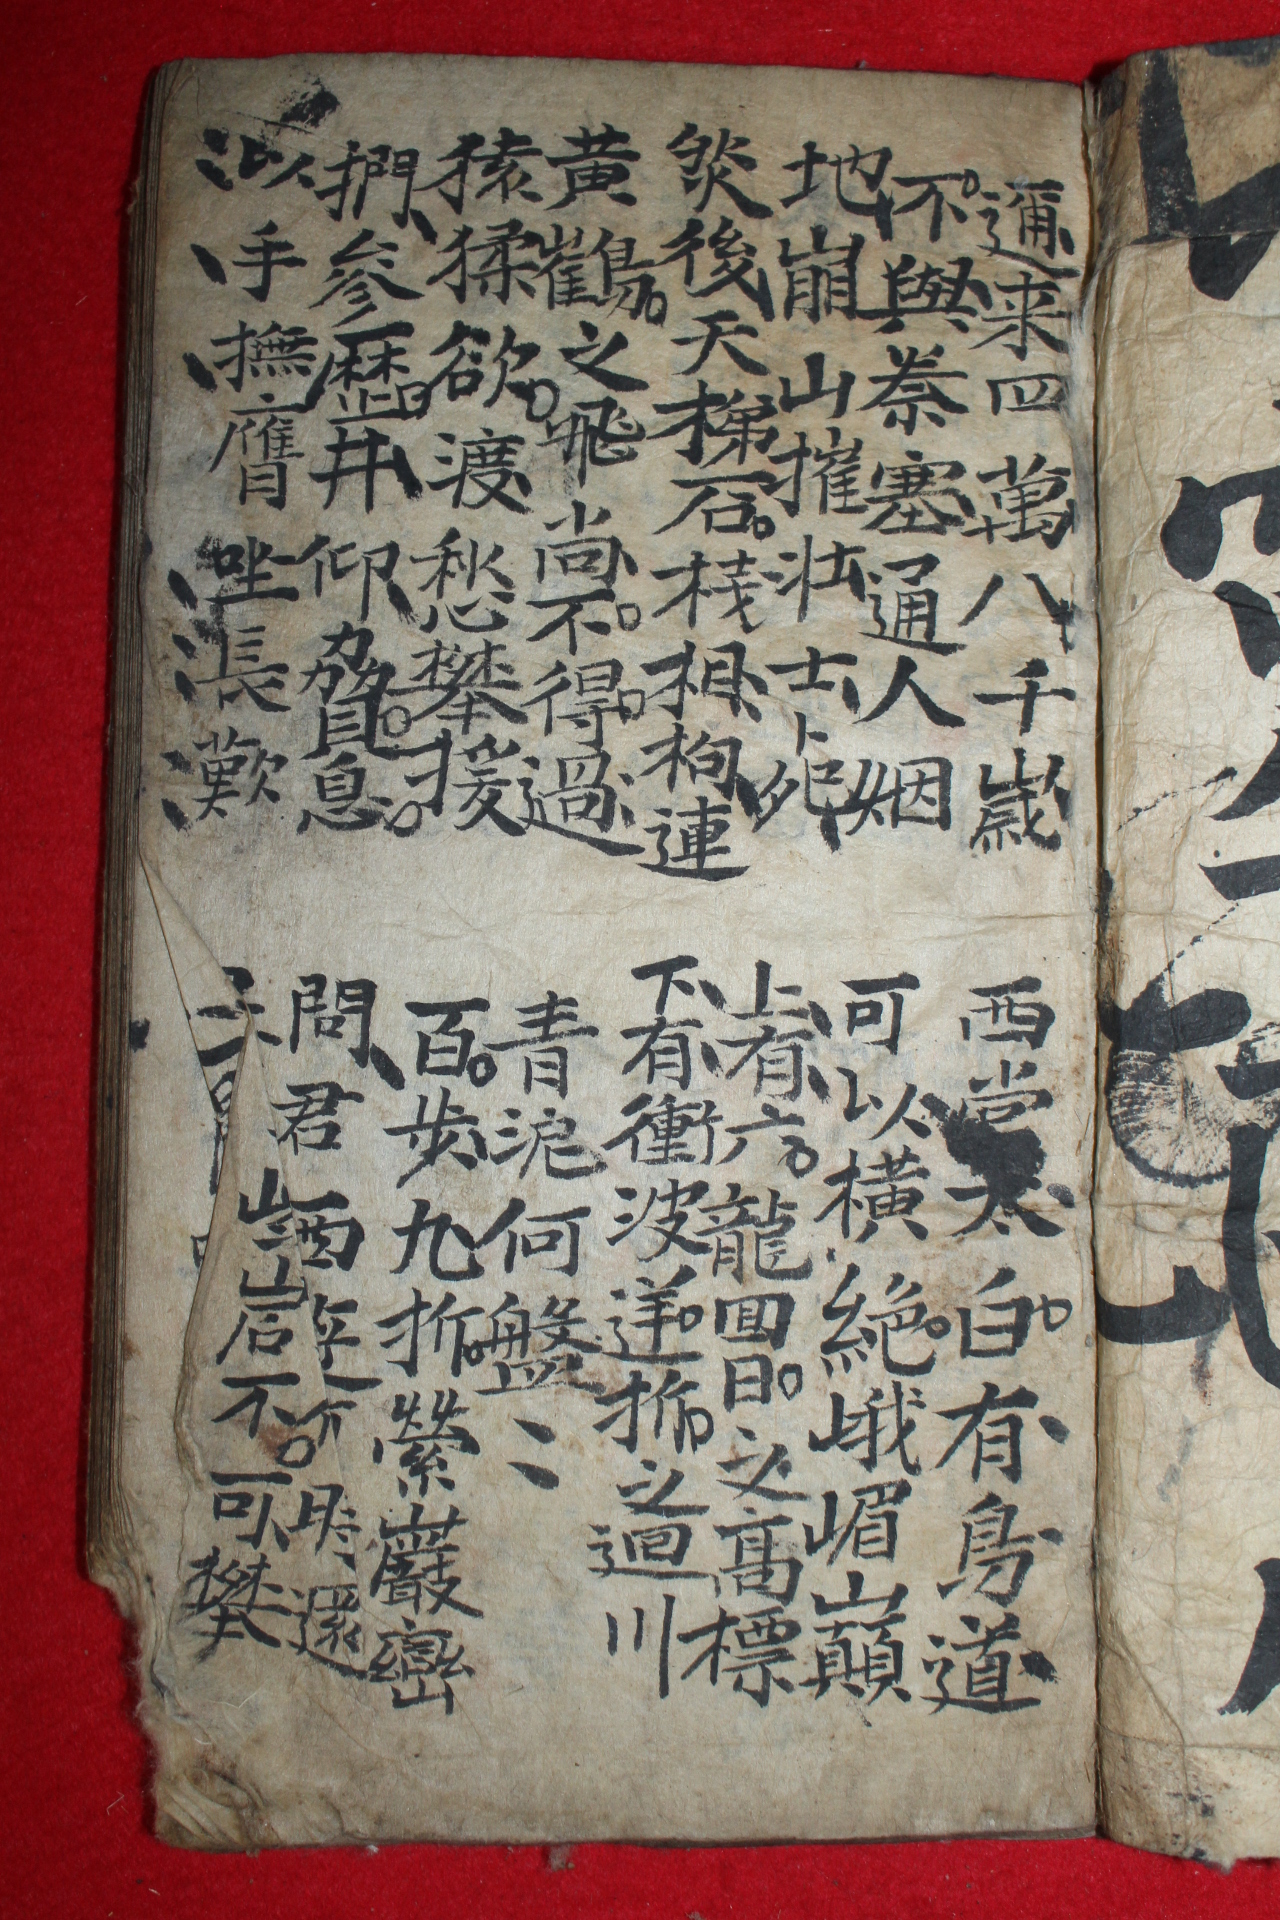 邇来四萬八千歲
不與秦塞通人烟
西當太白有鳥道
可以橫絶峨嵋巔
地崩山摧壯士死
然後天梯石棧相枸連
上有六龍回日之高標
下有衝波逆折之迴川
黃鶴之飛尚不得過
猿猱欲渡愁攀援
青泥何盤〻
百步九折縈巖巒
捫參歷井仰脅息
以手撫膺坐長歎
問君西遊何時還
岩不可攀